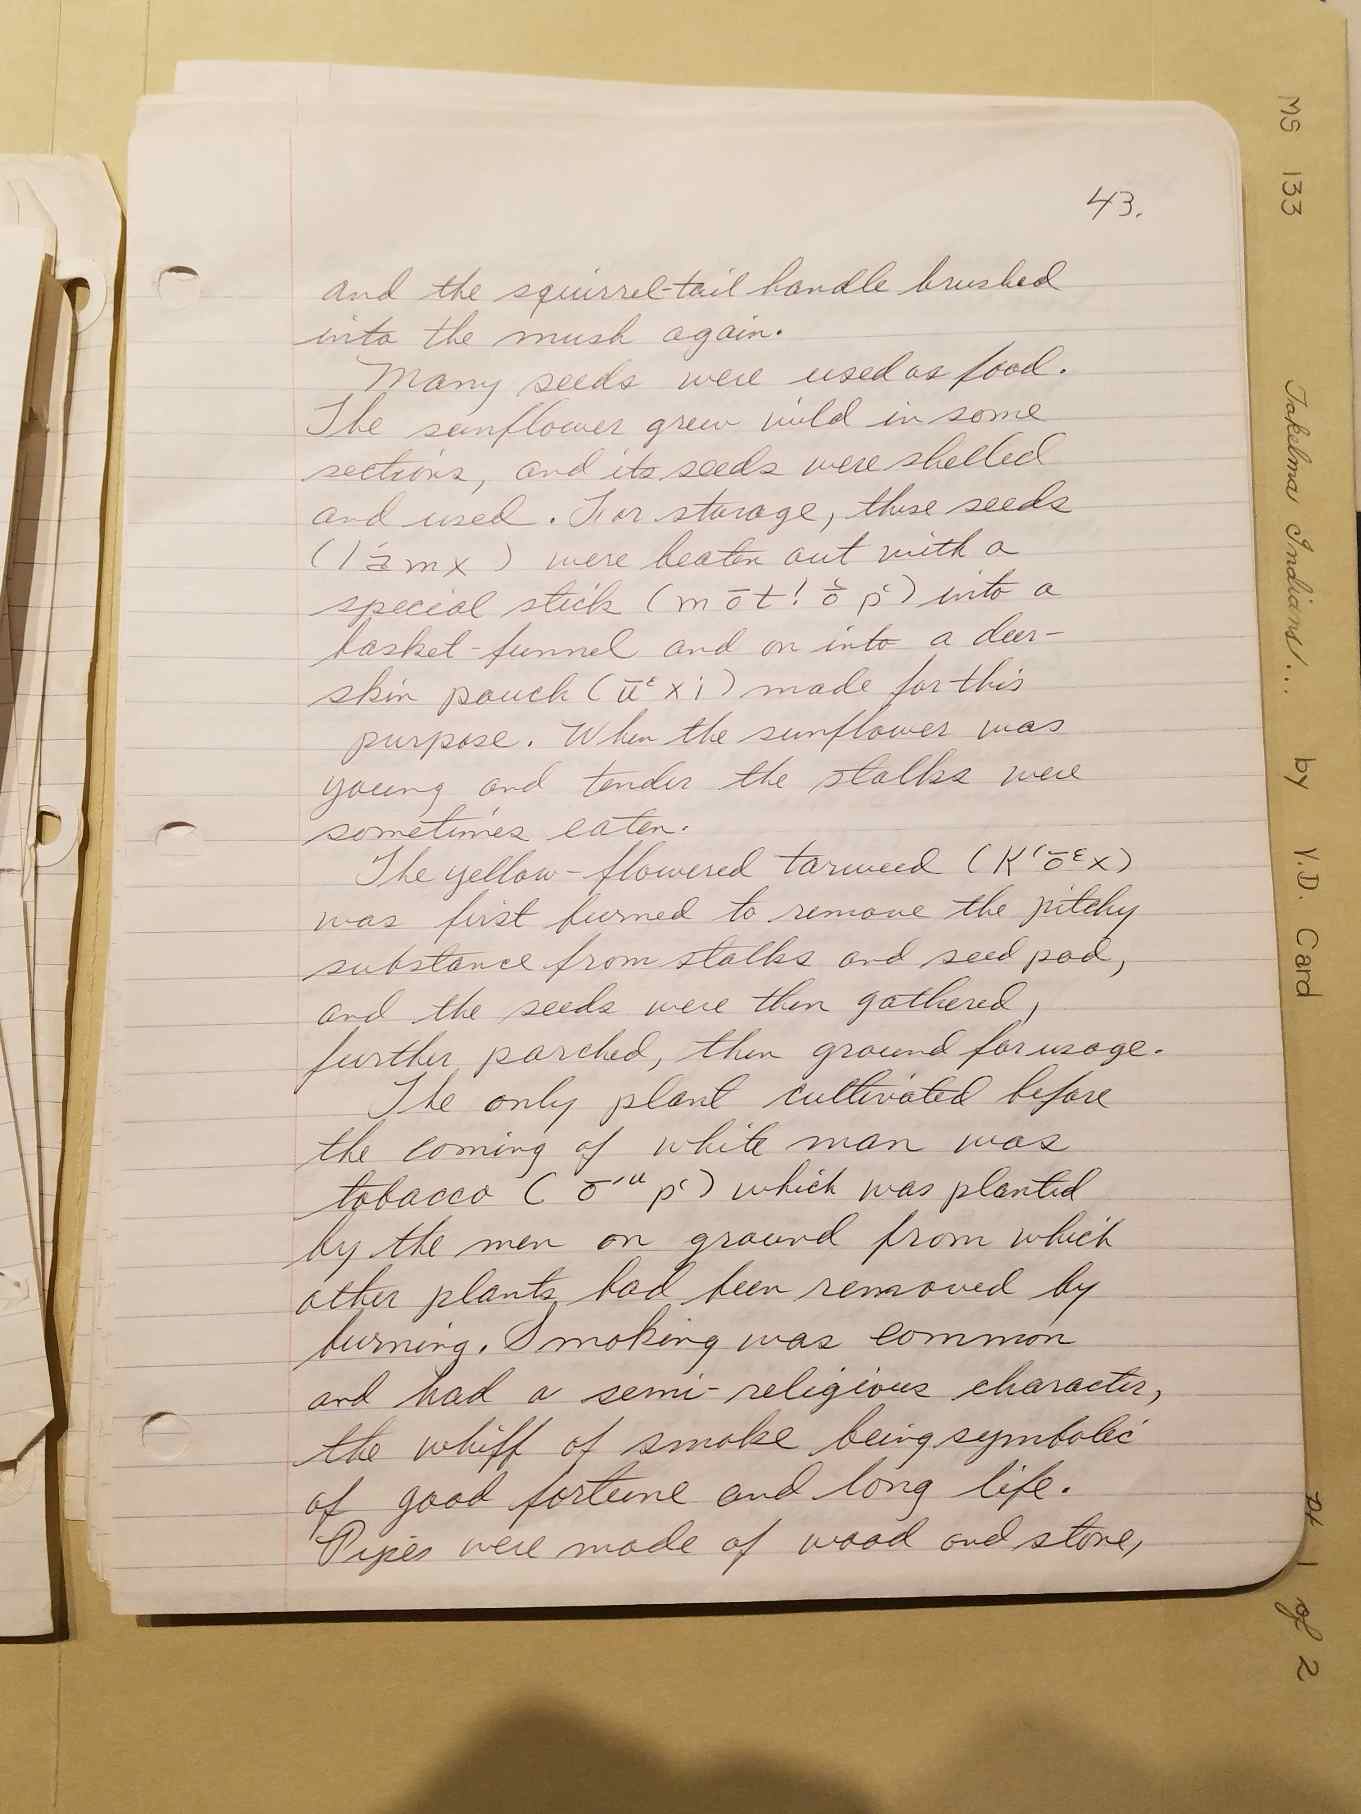 43.
and the squirrel-tail handle brushed
into the mush again.
Many seeds were used as food.
The sunflower grew wild in some
sections, and its seeds were shelled
and used. For storage, these seeds
( ) were beaten out with a
special stick (mōt!ṓpʻ) into a
basket-funnel and on into a deer-
skin pouch (ūᵋxi) made for this
purpose. When the sunflower was
young and tender the stalks were
sometimes eaten.
The yellow-flowered tarweed (Kʻōᵋx)
was first burned to remove the pitchy
substance from stalks and seed pod,
and the seeds were then gathered,
further parched, then ground for usage.
The only plant cultivated before
the coming of white man was
tobacco (ō´ᵘpʻ) which was planted
by the men on ground from which
other plants had been removed by
burning. Smoking was common
and had a semi-religious character,
the whiff of smoke being symbolic
of good fortune and long life.
Pipes were made of wood and stone,
MS 133 Takelma Indians... by V.D. Card pt 1 of 2